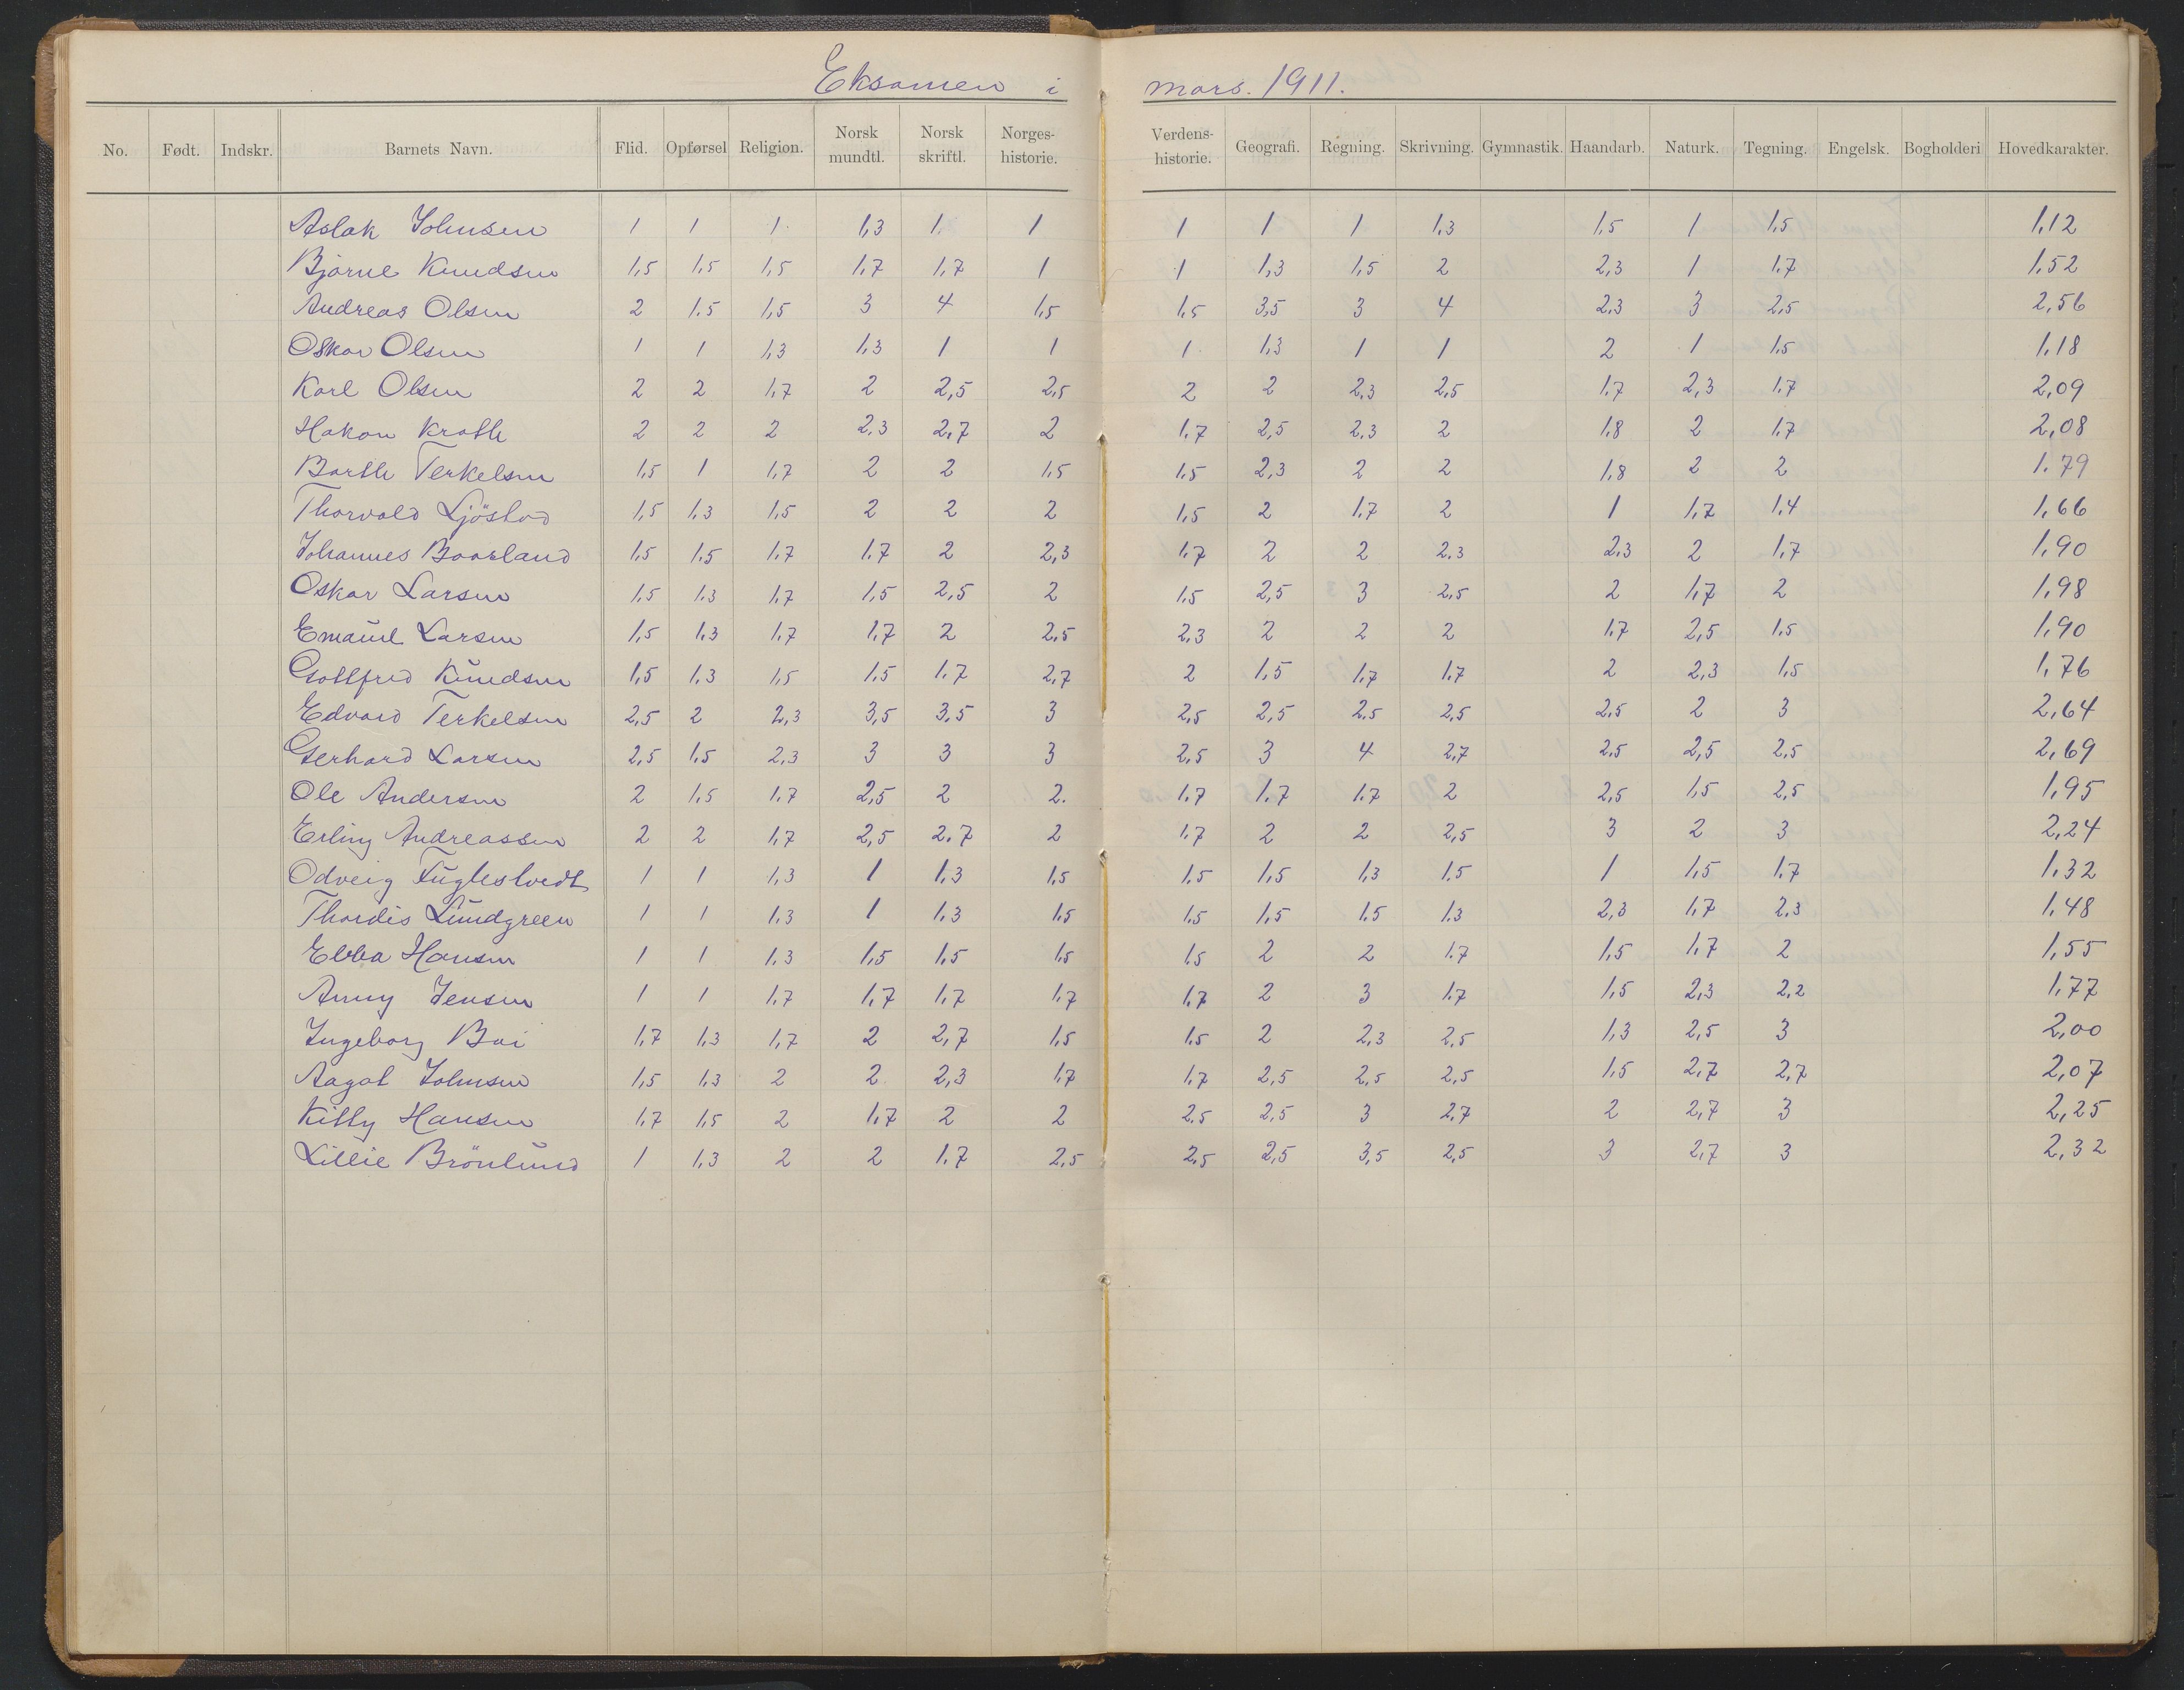 Eksamen i mars. 1911.
No. Født. Indskr. Barnets Navn. Flid. Opførsel Religion. Norsk mundtl. Norsk skriftl. Norges-historie. Verdens-historie. Geografi. Regning. Skrivning. Gymnastik. Haandarb. Naturk. Tegning. Engelsk. Bogholderi Hovedkarakter.
Aslak Johnsen 1 1 1 1,3 1 1 1 1 1 1,3 1,5 1 1,5 1,12
Bjarne Knudsen 1,5 1,5 1,5 1,7 1,7 1 1 1,3 1,5 2 2,3 1 1,7 1,52
Andreas Olsen 2 1,5 1,5 3 4 1,5 1,5 3,5 3 4 2,3 3 2,5 2,56
Oskar Olsen 1 1 1,3 1,3 1 1 1 1,3 1 1 2 1 1,5 1,18
Karl Olsen 2 2 1,7 2 2,5 2,5 2 2 2,3 2,5 1,7 2,3 1,7 2,09
Hakon 2 2 2 2,3 2,7 2 1,7 2,5 2,3 2 1,8 2 1,7 2,08
Terkelsen 1,5 1 1,7 2 2 1,5 1,5 2,3 2 2 1,8 2 2 1,79
Thorvald 1,5 1,3 1,5 2 2 2 1,5 2 1,7 2 1 1,7 1,4 1,66
Johannes Baarland 1,5 1,5 1,7 1,7 2 2,3 1,7 2 2 2,3 2,3 2 1,7 1,90
Oskar Larsen 1,5 1,3 1,7 1,5 2,5 2 1,5 2,5 3 2,5 2 1,7 2 1,98
Emanuel Larsen 1,5 1,3 1,7 1,7 2 2,5 2,3 2 2 2 1,7 2,5 1,5 1,90
Gottfred Knudsen 1,5 1,3 1,5 1,5 1,7 2,7 2 1,5 1,7 1,7 2 2,3 1,5 1,76
Edvard Terkelsen 2,5 2 2,3 3,5 3,5 3 2,5 2,5 2,5 2,5 2,5 2 3 2,64
Gerhard Larsen 2,5 1,5 2,3 3 3 3 2,5 3 4 2,7 2,5 2,5 2,5 2,69
Ole Andersen 2 1,5 1,7 2,5 2 2. 1,7 1,7 1,7 2 2,5 1,5 2,5 1,95
Erling Andreassen 2 2 1,7 2,5 2,7 2 1,7 2 2 2,5 3 2 3 2,24
Odveig Fuglestvedt 1 1 1,3 1 1,3 1,5 1,5 1,5 1,3 1,5 1 1,5 1,7 1,32
Thordis Lundgreen 1 1 1,3 1 1,3 1,5 1,5 1,5 1,5 1,3 2,3 1,7 2,3 1,48
Ebba Hansen 1 1 1,3 1,5 1,5 1,5 1,5 2 2 1,7 1,5 1,7 2 1,55
Anny Jensen 1 1 1,7 1,7 1,7 1,7 1,7 2 3 1,7 1,5 2,3 2,2 1,77
Ingeborg Boi 1,7 1,3 1,7 2 2,7 1,5 1,5 2 2,3 2,5 1,3 2,5 3 2,00
Aagot Johnsen 1,5 1,3 2 2 2,3 1,7 1,7 2,5 2,5 2,5 1,5 2,7 2,7 2,07
Kitty Hansen 1,7 1,5 2 1,7 2 2 2,5 2,5 3 2,7 2 2,7 3 2,25
Lillie Brönlund 1 1,3 2 2 1,7 2,5 2,5 2,5 3,5 2,5 3 2,7 3 2,32